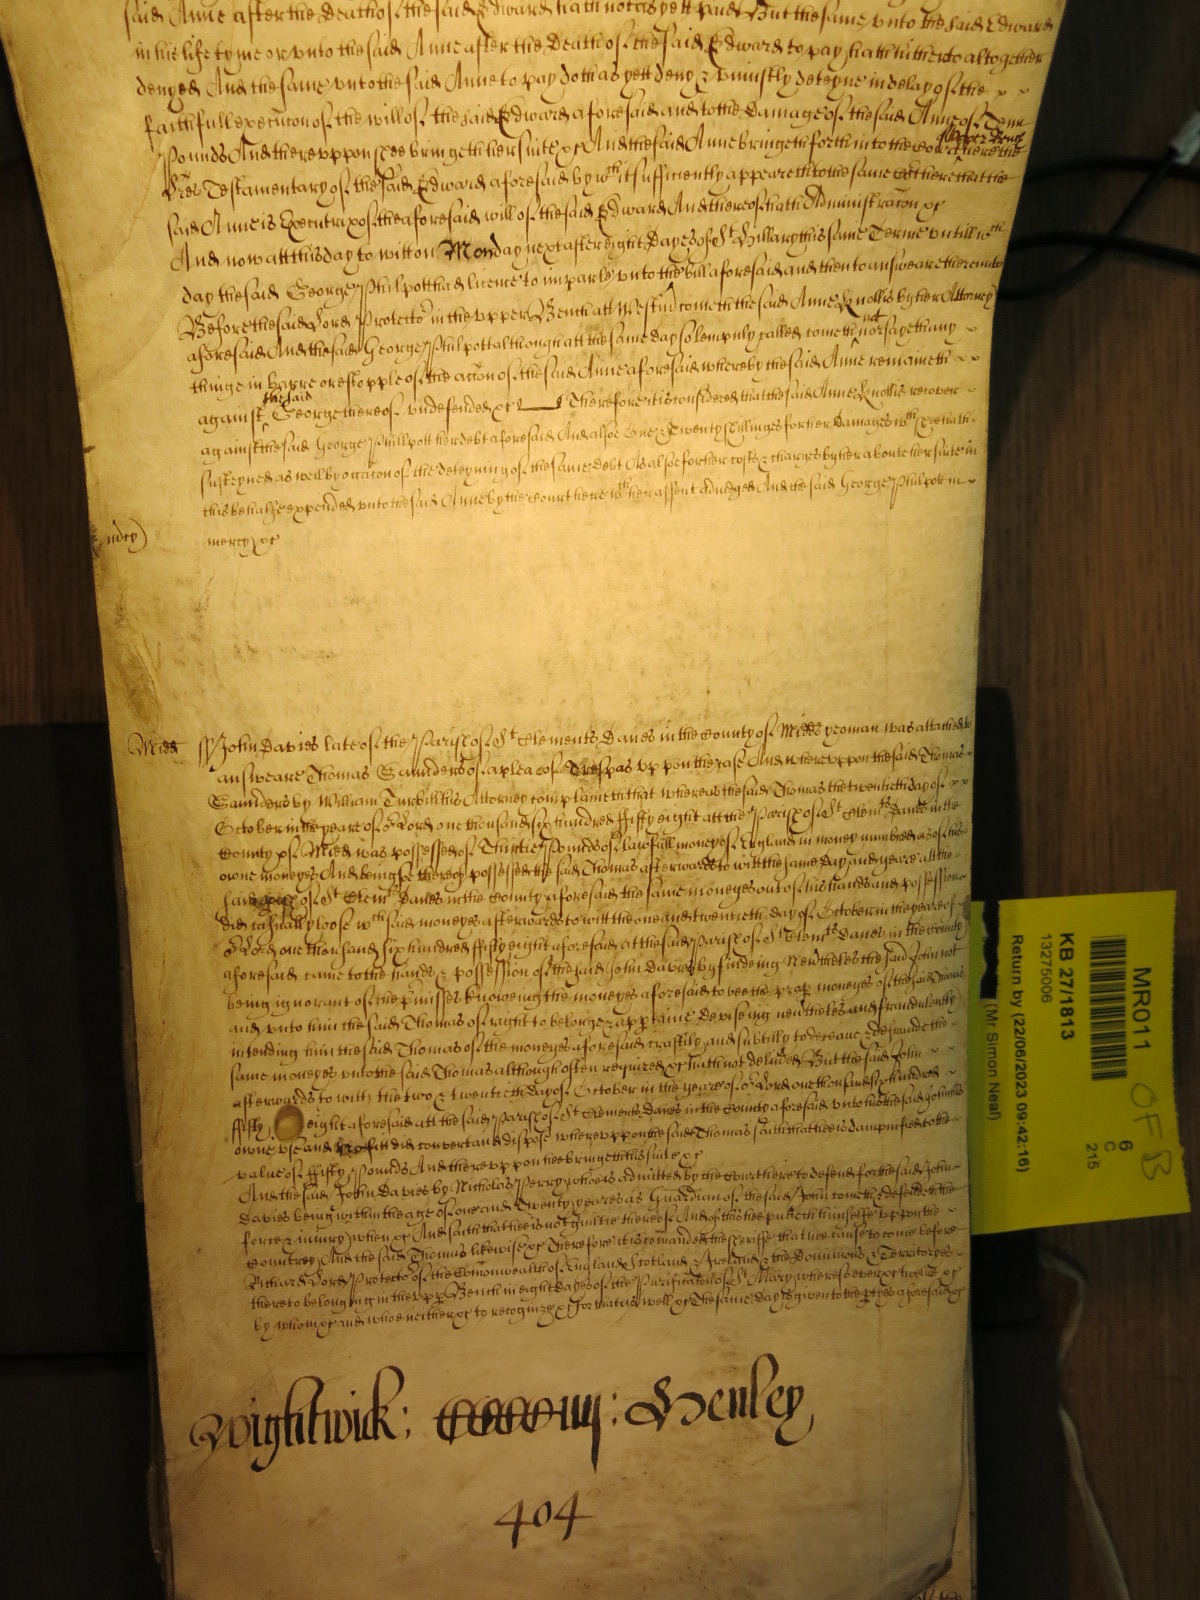 said Anne after the Death of the said Edward hath not as yett paid But the same unto the said Edward
in his life tyme or unto the said Anne after the Death of the said Edward to pay hath hitherto altogether
denyed And the same unto the said Anne to pay doth as yett deny & uniustly deteyne in delay of the
faithfull execucon of the will of the said Edward aforesaid and to the Damage of the said Anne of Tenn
Pounds And thereuppon shee bringeth her suite &c And the said Anne bringeth forth into the Court here the
Lres Testamentary of the said Edward aforesaid by wch it sufficiently appeareth to the same Court here that the
said Anne is Executrix of the aforesaid will of the said Edward And thereof hath Administracon &c
And now att this day to witt on Monday next after eight Dayes of St Hillary this same Terme untill wch
day the said George Philpott had licence to imparle unto the bill aforesaid and then to answeare thereunto
Before the said Lord Protector in the upper Bench att Westmr cometh the said Anne Knollis by her Attorney
aforesaid And the said George Philpott although att the same day solempnly called cometh not nor sayeth any
thinge in barre or estopple of the accon of the said Anne aforesaid whereby the said Anne remaineth
against the said George thereof undefended &c Therefore it is considered that the said Anne Knollis recover
against the said George Philpott her debt aforesaid And alsoe One & Twenty shillinges for her Damages wch shee hath
susteyned as well by occacon of the deteyning of the same debt As alsoe for her costs & charges by her aboute her suite in
this behalfe expended unto the said Anne by the Court here wth her assent adiudged And the said George Philpott in
mercy &c
Midd ss John Davies late of the Parish of St Clements Danes in the County of Midds yeoman was attached to
answeare Thomas Saunders of a plea of Trespas uppon the case And whereuppon the said Thomas
Saunders by William Turbill his Attorney complaineth that whereas the said Thomas the twentieth day of
October in the yeare of or Lord one thousand six hundred fifty eight att the Parish of St Clemts Danes in the
County of Midd was possessed of Thirtie Pounds of lawfull money of England in money numbred as of his
owne moneyes And being soe thereof possessed the said Thomas afterwards to witt the same day and yeare att the
said parish of St Clemts Danes in the County aforesaid the same moneyes out of his hands and possession
did casually loose wch said moneyes afterwards to witt the one and twentieth day of October in the yeare of
or Lord one thousand six hundred fifty eight aforesaid at the said Parish of St Clemts Danes in the County
aforesaid came to the hands & possession of the said John Davies by findeing Neverthelesse the said John not
being ignorant of the premisses knoweing the moneyes aforesaid to bee the proper moneyes of the said Thomas
and unto him the said Thomas of right to belonge & apptaine Deviseing neverthelesse and fraudulently
intending him the said Thomas of the moneyes aforesaid craftily and subtilly to deceave & defraude the
same moneyes unto the said Thomas although often required &c hath not delivered But the said John
afterwards to witt the two & twentieth day of October in the yeare of or Lord one thousand six hundred
fifty eight aforesaid att the said Parish of St Clements Danes in the County aforesaid unto his the said Johns
owne use and did convert and dispose whereuppon the said Thomas saith that hee is dampnified to the
value of fifty Pounds And thereuppon hee bringeth his suite &c
And the said John Davies by Nicholas Perry whoe is admitted by the Court here to defend for the said John
Davies being within the age of one and Twenty yeares as Guardian of the said John cometh & defendeth the
force & iniury when &c And saith that hee is not guiltie thereof And of this hee putteth himselfe uppon the
Countrey And the said Thomas likewise &c Therefore it is comanded the sheriffe that hee cause to come before
Richard Lord Protector of the Comonwealth of England Scotland & Ireland & the Dominions & Territoryes
thereto belonging in the upp Bench in eight dayes of the Purificacon of St Mary wheresoever &c twelve &c
by whom &c and whoe neither &c to recognize &c for that as well &c The same day is given to the ptyes aforesaid &c
Wightwick: CCCCiiij: Henley
404
MR011
KB 27/1813
13275006
(Mr Simon Neal)
Return by (22/06/2023 09:42:16)
6
C
215
OF B